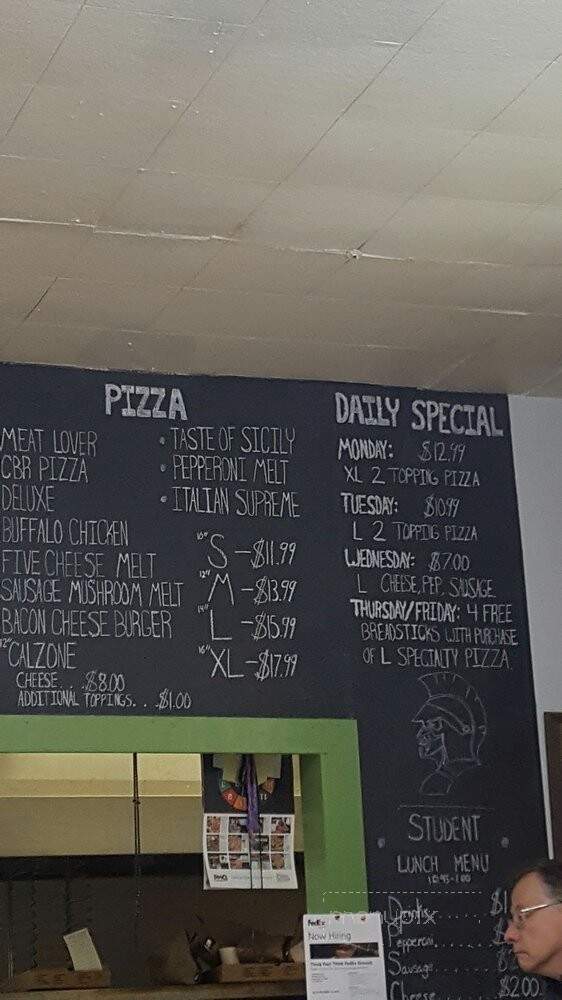 PIZZA
MEAT LOVER
CBR PIZZA
DELUXE
BUFFALO CHICKEN
FIVE CHEESE MELT
SAUSAGE MUSHROOM MELT
BACON CHEESE BURGER
12" CALZONE
CHEESE... $8.00
ADDITIONAL TOPPINGS... $1.00
• TASTE OF SICILY
• PEPPERONI MELT
• ITALIAN SUPREME
10" S - $11.99
12" M - $13.99
14" L - $15.99
16" XL - $17.99
DAILY SPECIAL
MONDAY: $12.99
XL 2 TOPPING PIZZA
TUESDAY: $10.99
L 2 TOPPING PIZZA
WEDNESDAY: $7.00
L CHEESE, PEP, SAUSAGE
THURSDAY/FRIDAY: 4 FREE
BREADSTICKS WITH PURCHASE
OF L SPECIALTY PIZZA
STUDENT
LUNCH MENU
Drinks
Pepperoni
Sausage
Cheese $2.00
FedEx
Now Hiring
menupix